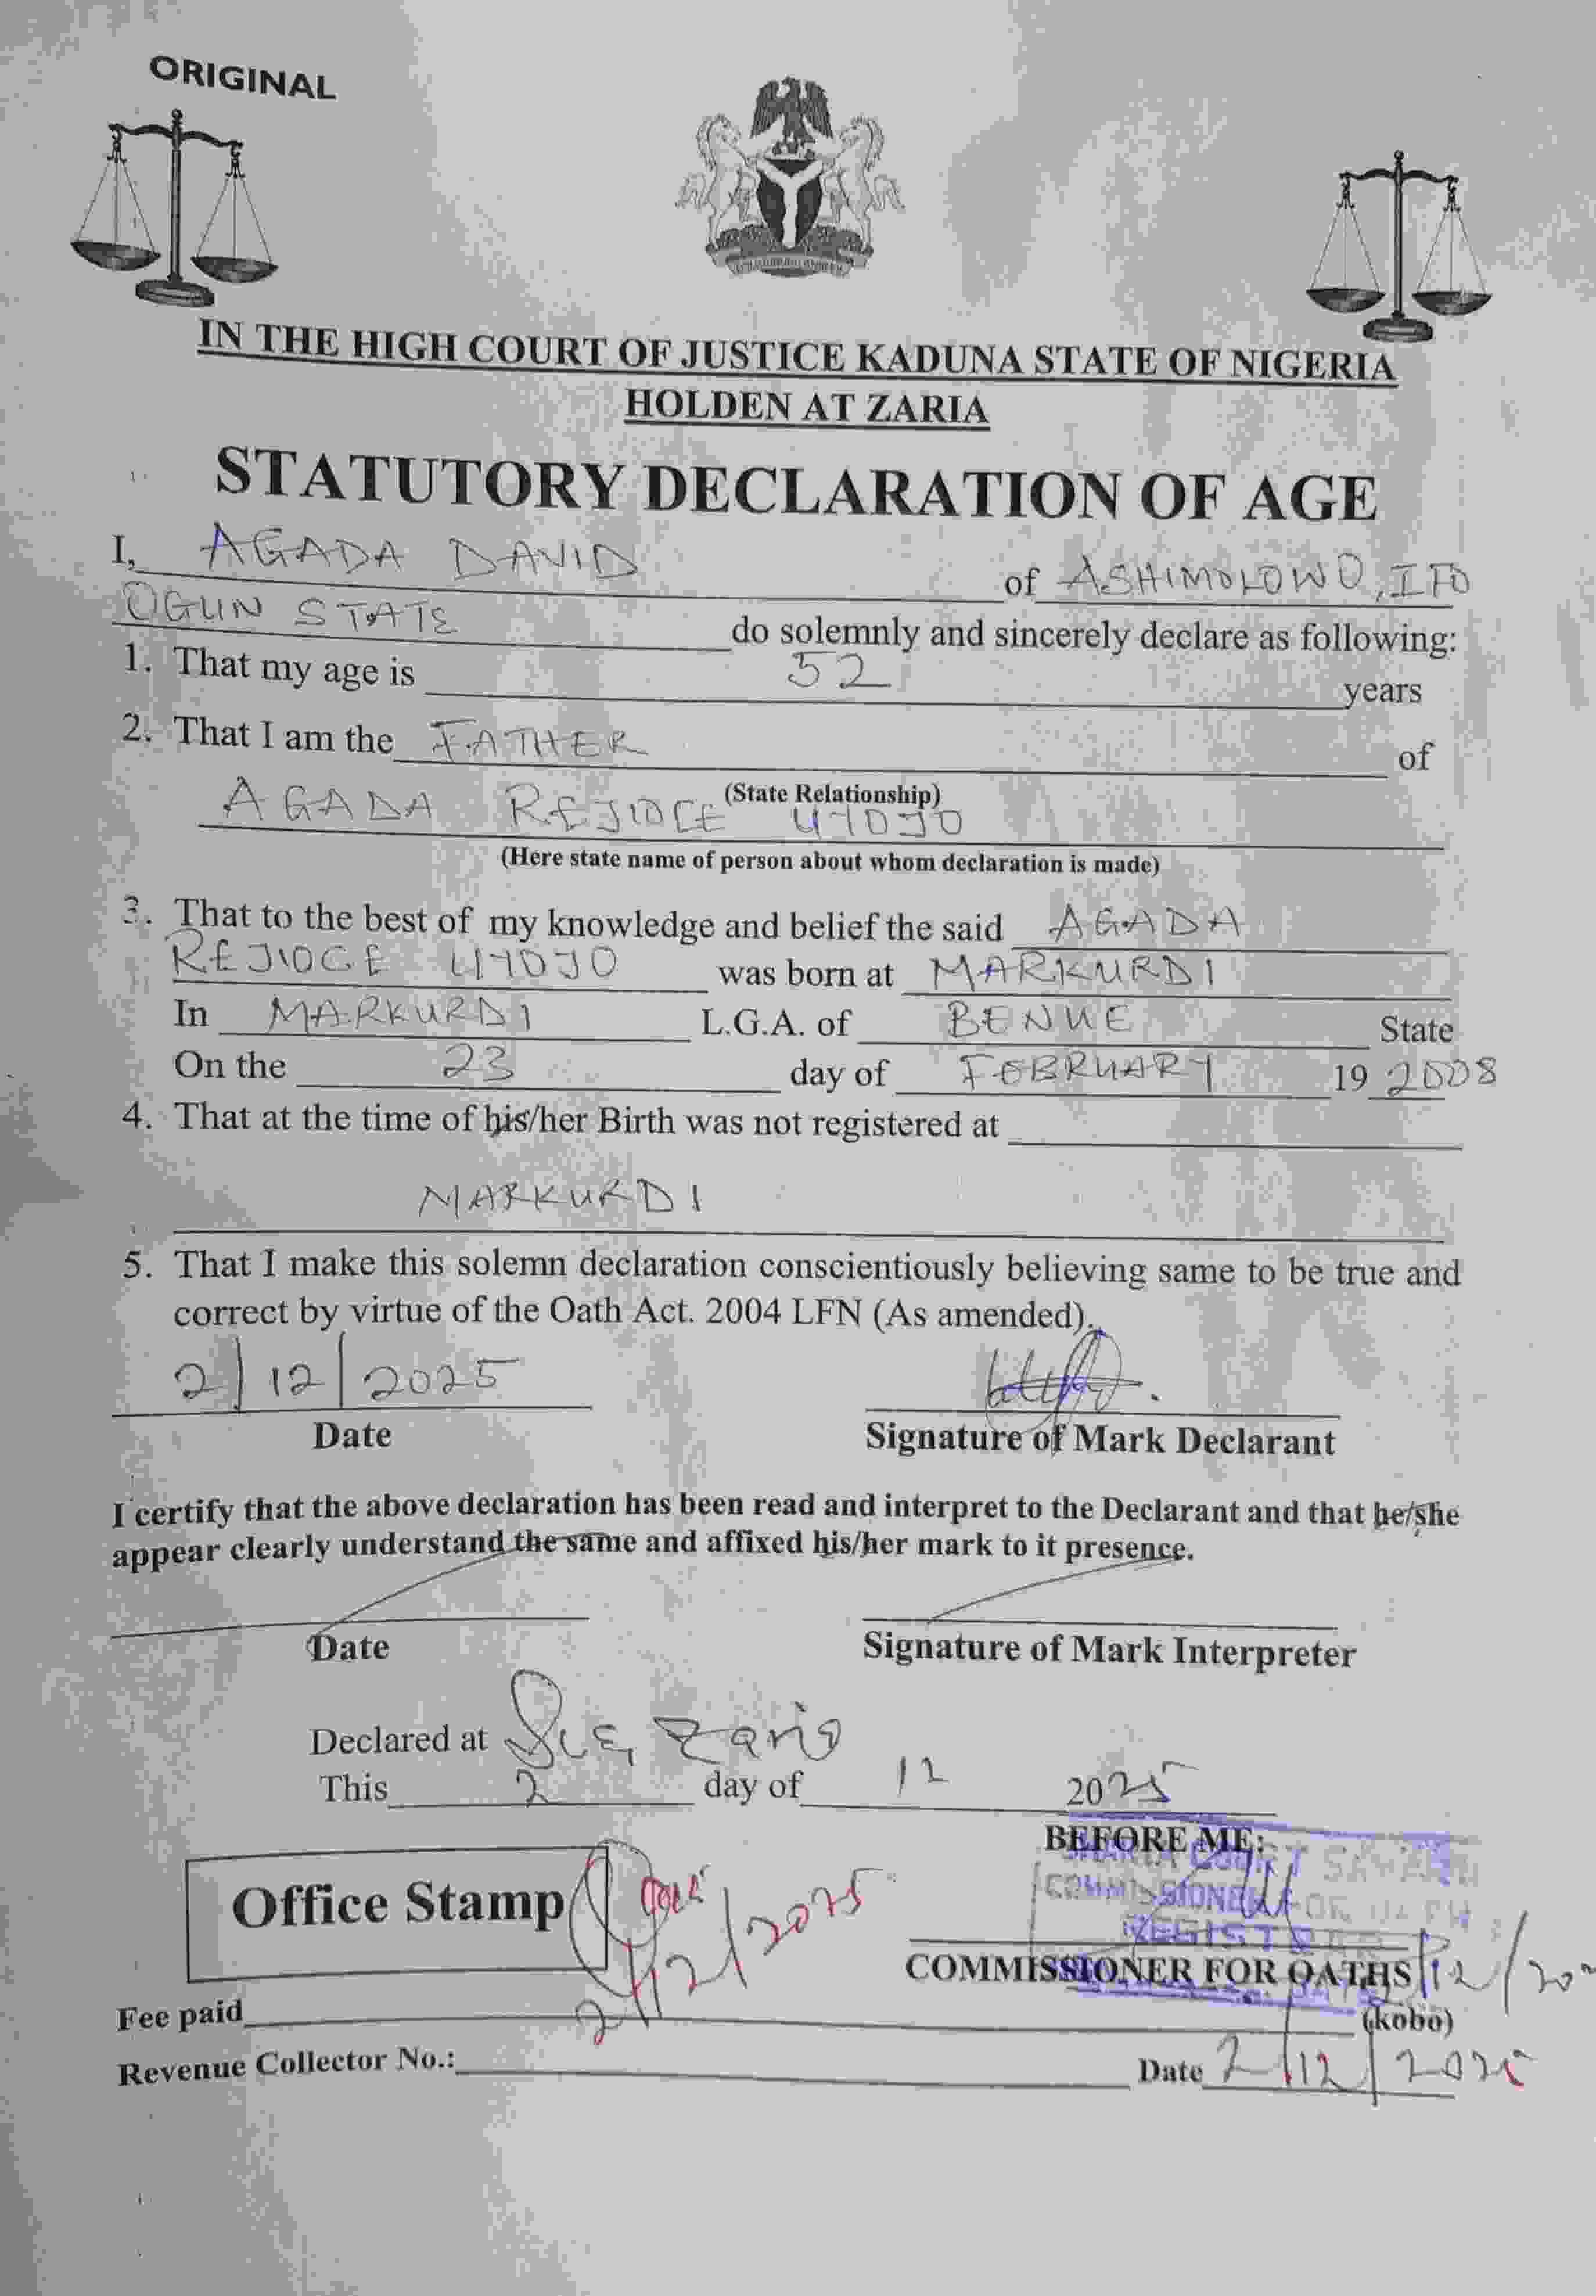 ORIGINAL
IN THE HIGH COURT OF JUSTICE KADUNA STATE OF NIGERIA
HOLDEN AT ZARIA
STATUTORY DECLARATION OF AGE
I, AGADA DAVID of ASHIMOLOWO, IFO
OGUN STATE do solemnly and sincerely declare as following:
1. That my age is 52 years
2. That I am the FATHER of
(State Relationship)
AGADA REJOICE UYOJO
(Here state name of person about whom declaration is made)
3. That to the best of my knowledge and belief the said AGADA
REJOICE UYOJO was born at MARKURDI
In MARKURDI L.G.A. of BENUE State
On the 23 day of FEBRUARY 19 2008
4. That at the time of his/her Birth was not registered at
MARKURDI
5. That I make this solemn declaration conscientiously believing same to be true and
correct by virtue of the Oath Act. 2004 LFN (As amended).
2/12/2025
Date Signature of Mark Declarant
I certify that the above declaration has been read and interpret to the Declarant and that he/she
appear clearly understand the same and affixed his/her mark to it presence.
Date Signature of Mark Interpreter
Declared at Zaria
This 2 day of 12 2025
BEFORE ME:
COMMISSIONER FOR OATH
REGISTRAR
Office Stamp
2/12/2025
COMMISSIONER FOR OATHS
Fee paid (kobo)
Revenue Collector No.: Date 2/12/2025